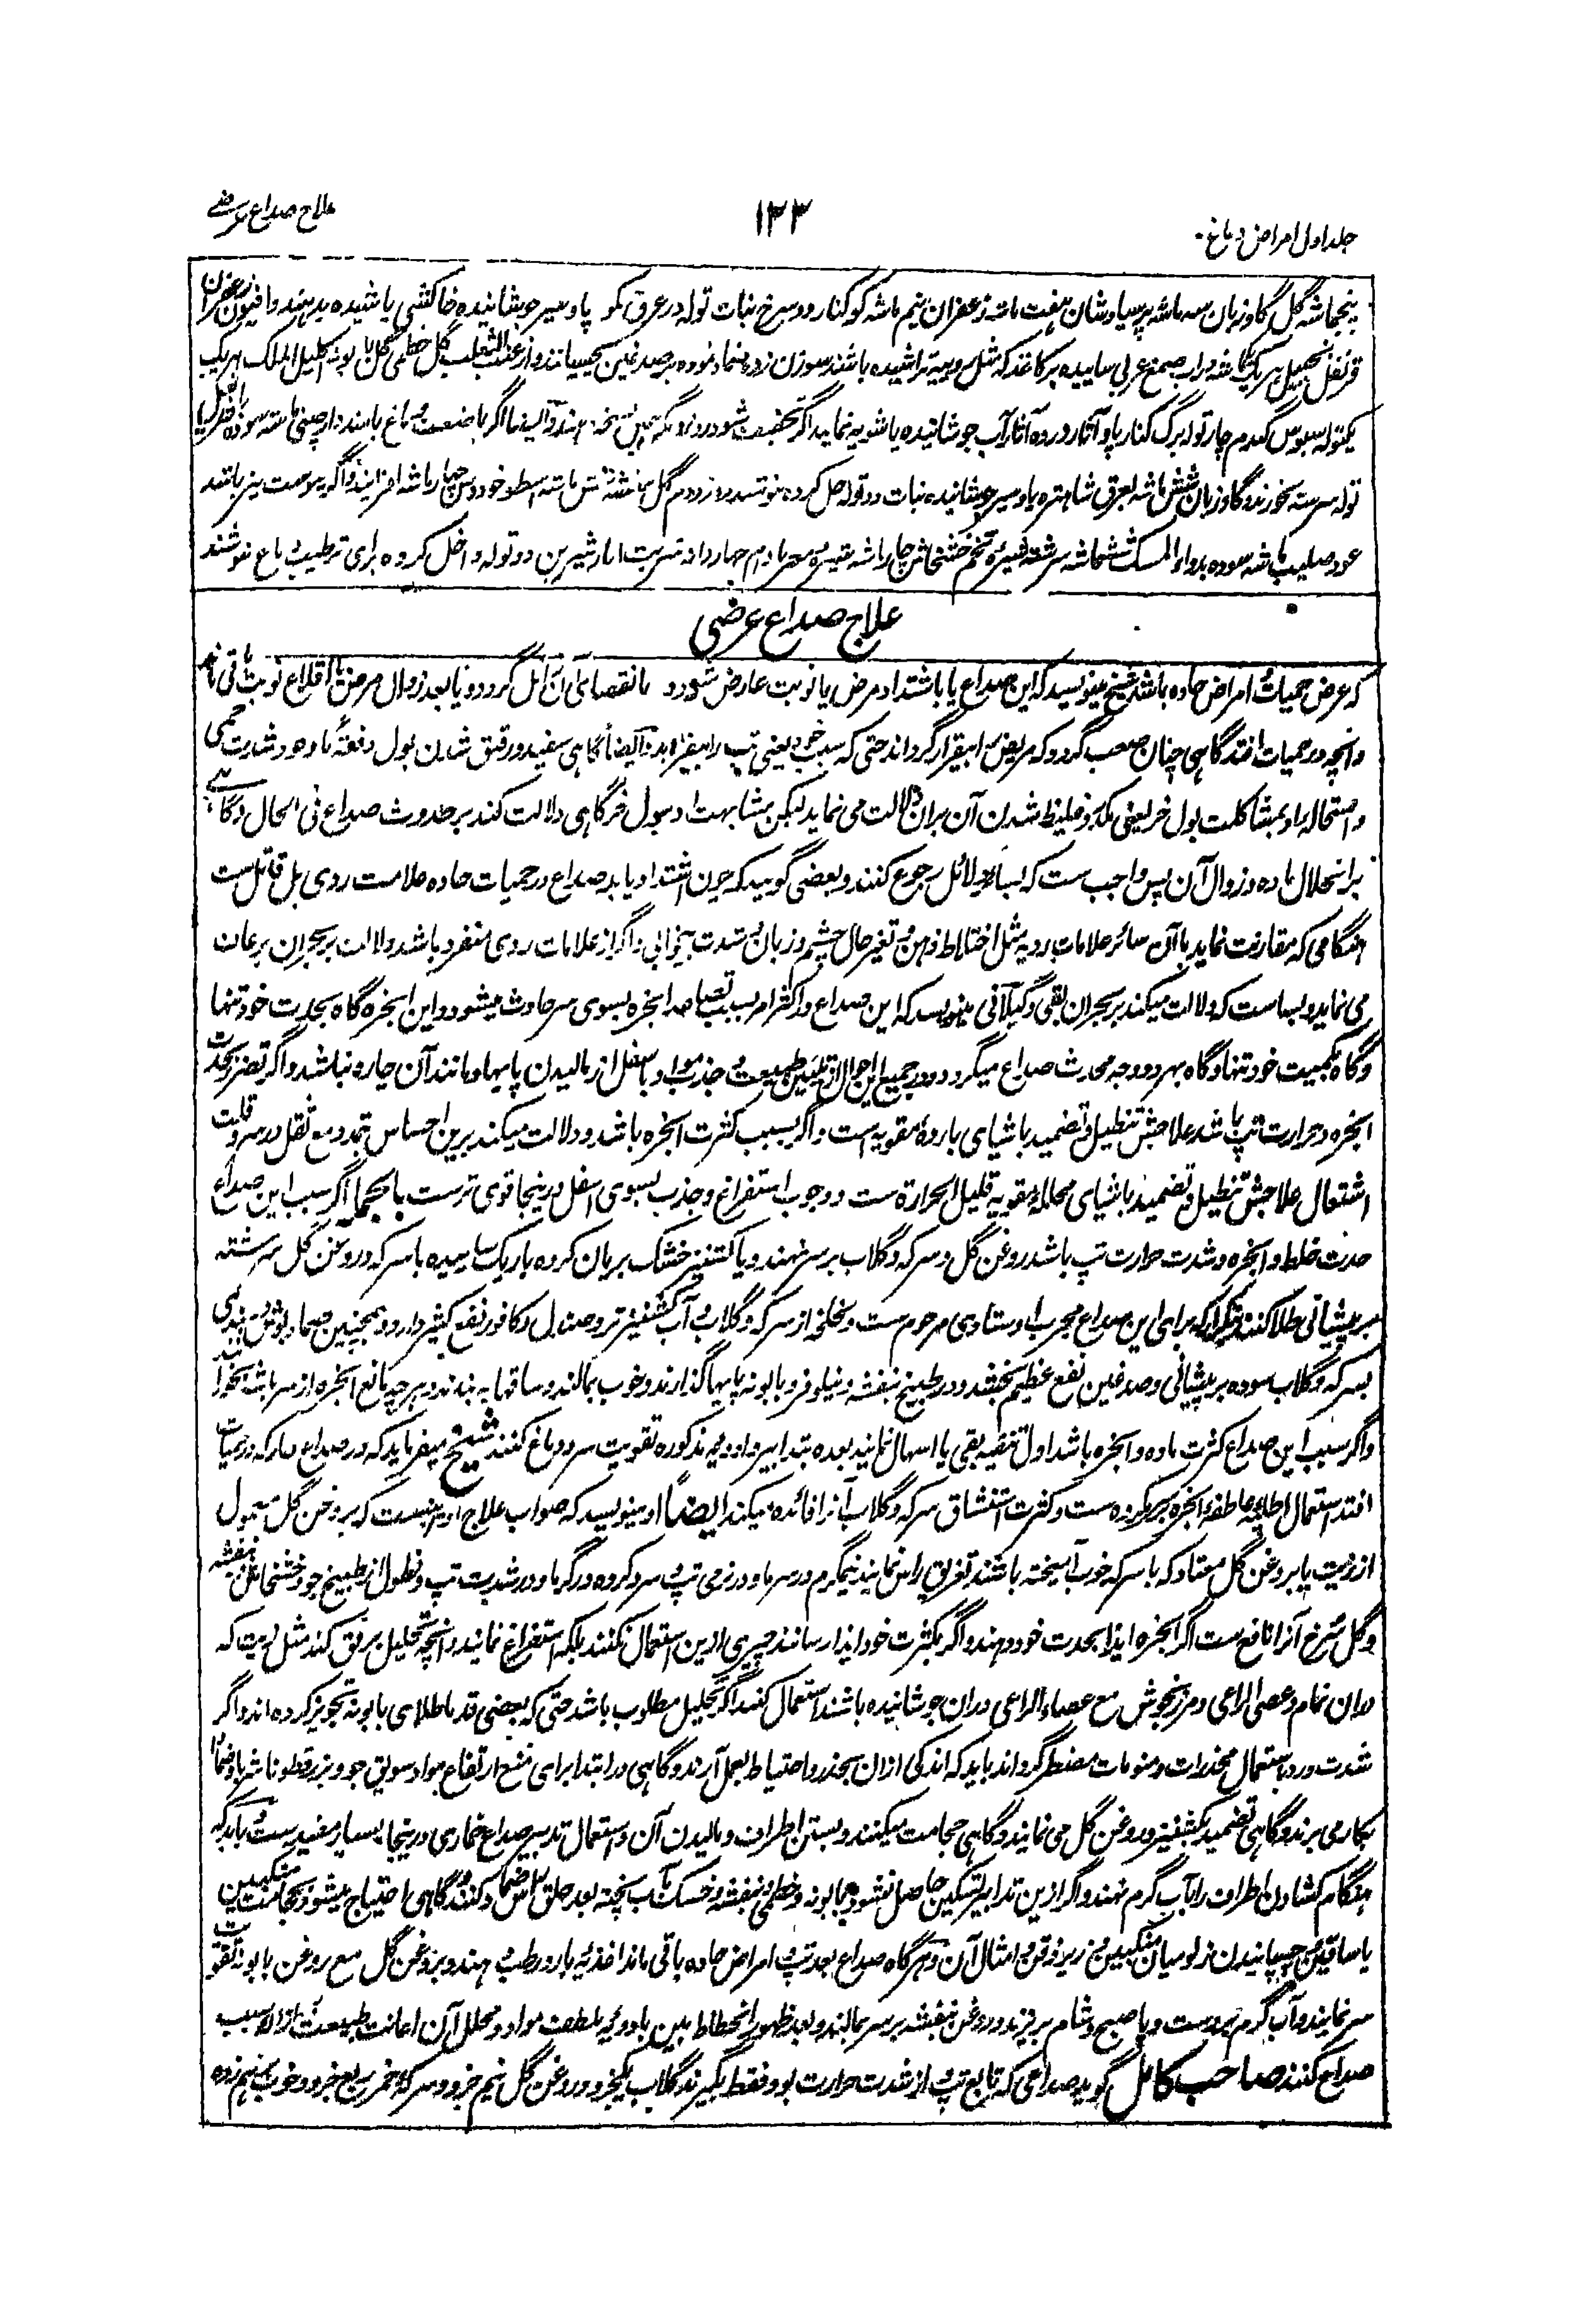 جلد اول امراض دماغ
۱۲۳
علاج صداع عرضی
پنجماشه گل گاوزبان سه ماشه پرسیاوشان هفت ماشه زعفران نیم ماشه کوکنار دو سرخ نبات توله در عرق مکو پاوسیر جوشانیده خاکشی پاشیده بدهند و افیون زعفران
قرنفل زنجبیل هر یک ماشه در آب صمغ عربی ساییده بر کاغذ که مثل روپیه تراشیده باشند سوزن زده ضماد نموده بر صدغین بچسپانند و از عنب الثعلب گل خطمی گل بابونه اکلیل الملک هر یک
یکتوله سبوس گندم چار توله برگ کنار پاو آثار در ده آثار آب جوشانیده پاشویه نمایند اگر تخفیف شود روز دیگر همین نسخه دهند و ایضا اگر با ضعف دماغ باشد دارچینی ماشه سوده
توله سرشته بخورند گاوزبان شش ماشه بعرق شاهتره پاوسیر جوشانیده نبات دو توله حل کرده بنوشند روز دوم گل بنفشه شش ماشه اسطوخودوس چهار ماشه افزایند و اگر یبوست نیز باشد
عود صلیب ماشه سوده بدواء المسک ششماشه سرشته شیره تخم خشخاش چار ماشه شیره مغز بادام چهار دانه شربت انار شیرین دو توله داخل کرده برای ترطیب دماغ نوشند
علاج صداع عرضی
که عرض حمیات و امراض حاده باشد شیخ مینویسد که این صداع یا باشتداد مرض یا نوبت عارض شود و با نقصان آن زائل گردد و یا بعد زوال مرض یا اقلاع نوبت باقی ماند
و آنچه در حمیات افتد گاهی چنان صعب گردد که مریض را بیقرار گرداند حتی که سبب خود یعنی تپ را بیفزاید و ایضاً گاهی سفید و رقیق شدن بول دفعةً با وجود شدت حمی
و استحاله او بمشاکلت بول خر یعنی مکدر و غلیظ شدن آن بران دلالت می نماید لیکن مشابهت او ببول خر گاهی دلالت کند بر حدوث صداع فی الحال و گاهی
بر انحلال ماده و زوال آن پس واجب ست که بسائر دلائل رجوع کنند و بعضی گویند که چون اشتداد یابد صداع در حمیات حاده علامت ردی بل قاتل ست
هنگامی که مقارنت نماید با آن سائر علامات ردیه مثل اختلاط ذهن و تغیر حال چشم و زبان و شدت بیخوابی و اگر از علامات ردی منفرد باشد دلالت بر بحران برعاف
می نماید و بسا ست که دلالت میکند بر بحران بقی و گیلانی مینویسد که این صداع در اکثر امر بسبب تصاعد ابخره بسوی سر حادث میشود و این ابخره گاه بحدت خود تنها
و گاه بکمیت خود تنها و گاه بهر دو وجه محدث صداع میگردد و در جمیع این احوال از تلیین طبیعت و جذب مواد باسفل از مالیدن پایها و مانند آن چاره نباشد و اگر تضرر بحدت
ابخره و حرارت تپ باشد علاجش تنطیل و تضمید باشیای بارده مقویه است و اگر بسبب کثرت ابخره باشد و دلالت میکند برین احساس تمدد مع ثقل در سر و قلت
اشتعال علاجش تنطیل و تضمید باشیای محلله مقویه قلیل الحرارة ست و وجوب استفراغ و جذب بسوی اسفل درینجا قوی ترست بالجمله اگر سبب این صداع
حدت خلط و ابخره و شدت حرارت تپ باشد روغن گل و سرکه و گلاب بر سر نهند و یا کشنیز خشک بریان کرده باریک ساییده با سرکه و روغن گل سرشته
بر پیشانی طلا کنند و تکرار که برای این صداع مجرب اوستادی مرحوم ست و نخلخه از سرکه و گلاب و آب کشنیز تر و صندل و کافور نفع کثیر دارد و همچنین ضماد بوش دربندی
بسرکه و گلاب سوده بر پیشانی و صدغین نفع عظیم بخشد و در طبیخ بنفشه و نیلوفر و بابونه پایها گذارند و خوب بمالند و ساقها به بندند و هر چه مانع ابخره از سر باشد بخورانند
و اگر سبب این صداع کثرت ماده و ابخره باشد اول تنقیه بقی یا اسهال نمایند بعده بتدابیر و ادویه مذکوره تقویت سر و دماغ کنند شیخ میفرماید که در صداع حار که در حمیات
افتد استعمال اطلیه عاطفه ابخره بسر مکروه ست و کثرت استنشاق سرکه و گلاب آنرا فائده میکند ایضاً او مینویسد که صواب علاج او این ست که بروغن گل معمول
از زیت یا بروغن گل معتاد که با سرکه خوب آمیخته باشند تغریق راس نمایند نیمگرم در سرما و در نرمی تپ و سرد کرده در گرما و در شدت تپ و نطول از طبیخ جو و خشخاش و بنفشه
و گل سرخ آنرا نافع ست اگر ابخره ایذا بحدت خود دهند و اگر بکثرت خود ایذا رسانند چیزی ازین استعمال نکنند بلکه استفراغ نمایند و آنچه تحلیل برفق کند مثل زیت که
دران نمام و عصی الراعی و مرزنجوش مع عصاء الراعی دران جوشانیده باشند استعمال کنند اگر تحلیل مطلوب باشد حتی که بعضی قدما طلای بابونه تجویز کرده اند و اگر
شدت درد باستعمال مخدرات و منومات مضطر گرداند باید که اندکی ازان بحذر و احتیاط بعمل آرند و گاهی در ابتدا برای منع ارتفاع مواد سویق جو و بزرقطونا شربا و ضماداً
بکار می برند و گاهی تضمید بکشنیز و روغن گل می نمایند و گاهی حجامت میکنند و بستن اطراف و مالیدن آن و استعمال تدبیر صداع خماری درینجا بسیار مفید ست و باید که
هنگام کشادن اطراف را بآب گرم نهند و اگر ازین تدابیر تسکین حاصل نشود بابونه و خطمی و بنفشه و خسک بآب پخته بعد حلق راس ضماد کنند و گاهی احتیاج میشود بحجامت منکبین
یا ساقین و چسپانیدن زلو میان منکبین و زیر ذقن و امثال آن و هرگاه صداع بعد تپ و امراض حاده باقی ماند اغذیه بارد رطب دهند و بروغن گل مع روغن بابونه تقویت
سر نمایند و آب گرم بر دست و پا صبح و شام بریزند و روغن بنفشه بر سر بمالند و بعد ظهور انحطاط بین بادویه ملطف مواد و محلل آن اعانت طبیعت بر ازاله سبب
صداع کنند صاحب کامل گوید صداعی که تابع تپ و از شدت حرارت بود فقط بگیرند گلاب یکجزو و روغن گل نیم جزو و سرکه خمر ربع جزو و خوب بهم زده